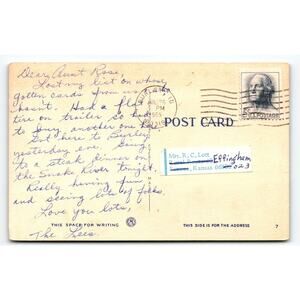 Dear Aunt Rose,
Lost my list on whose
gotten cards from us &
hasn't. Had a flat
tire on trailer so had
to buy another one here
Got here to Burley
yesterday eve. Going
to a steak dinner on
the Snake River tonight.
Really having fun
and seeing lots of folks.
Love you lots,
The Lees.
THIS SPACE FOR WRITING
PM
POST CARD
Mrs. R. C. Lott
Effingham
Kansas 66023
THIS SIDE IS FOR THE ADDRESS
7